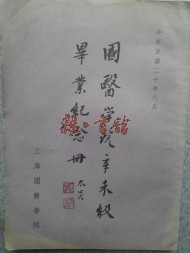 中華民國二十年八月
國醫學院辛未級
畢業紀念冊
太炎
上海國醫學院